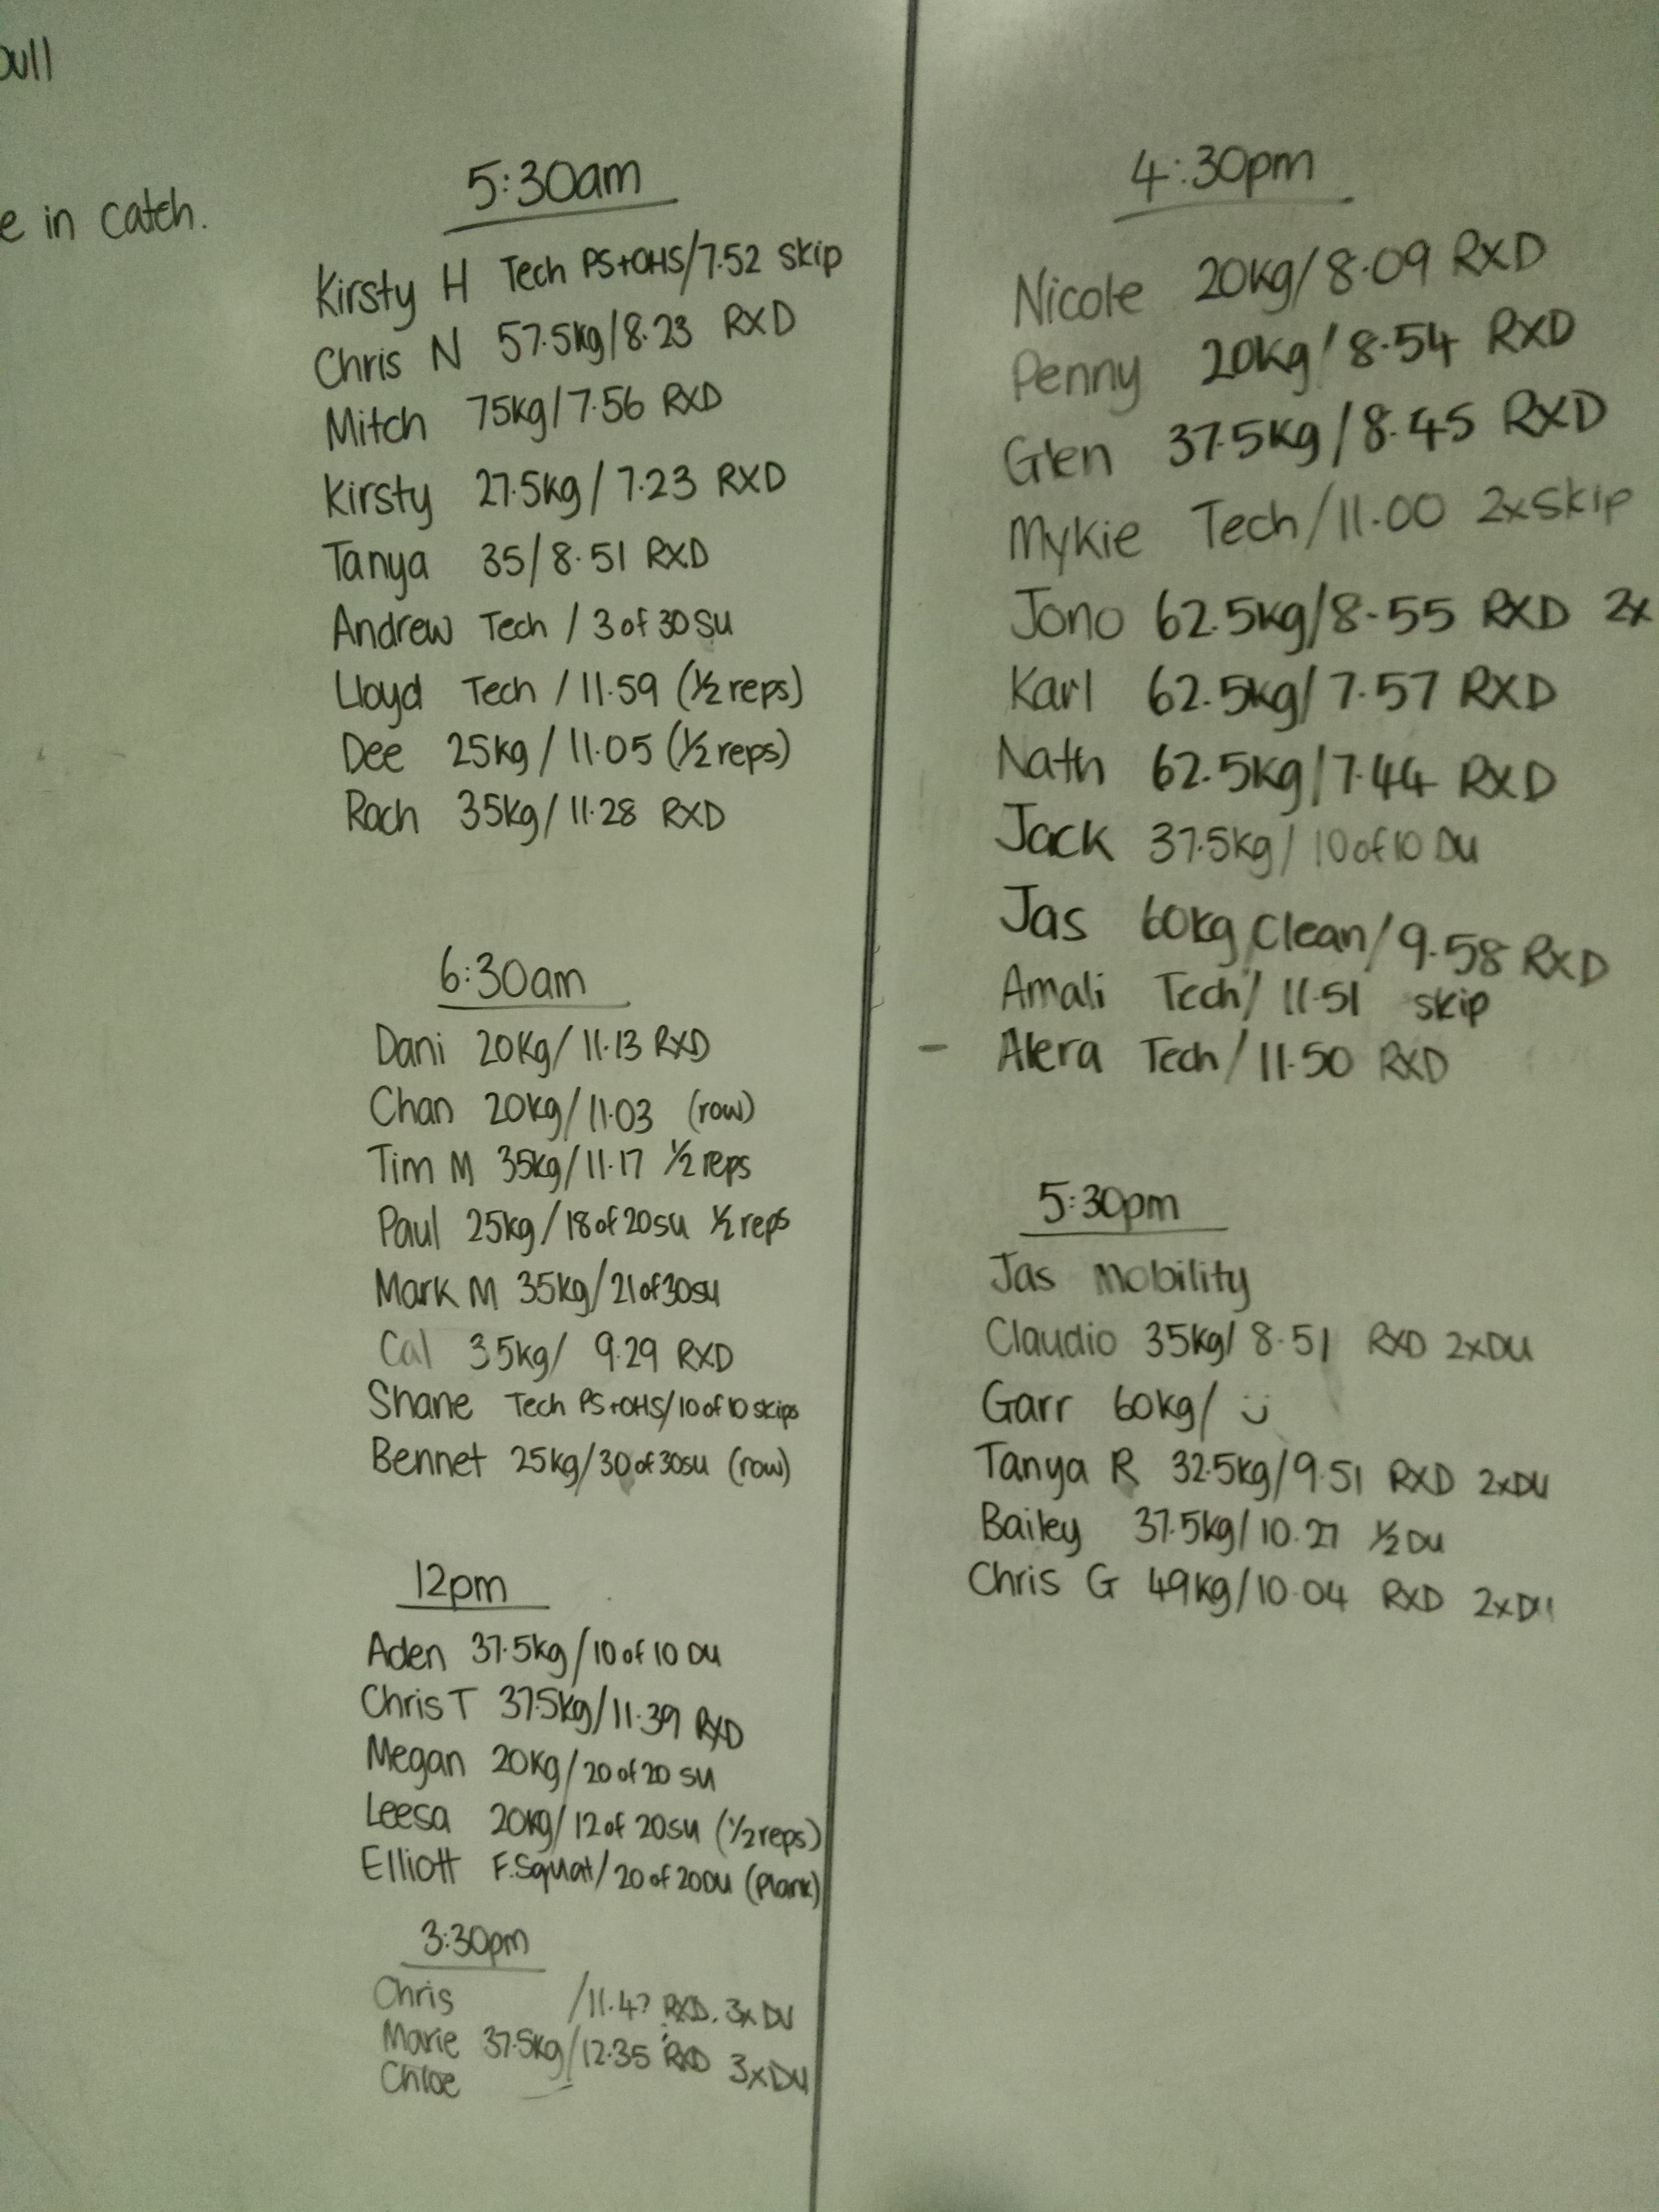 pull
e in catch.
5:30am
Kirsty H Tech PS+OHS/7.52 skip
Chris N 57.5kg/8.23 RXD
Mitch 75kg/7.56 RXD
Kirsty 27.5kg/7.23 RXD
Tanya 35/8.51 RXD
Andrew Tech / 3 of 30 SU
Lloyd Tech / 11.59 (½ reps)
Dee 25kg / 11.05 (½ reps)
Rach 35kg/11.28 RXD
6:30am
Dani 20kg/11.13 RXD
Chan 20kg/11.03 (row)
Tim M 35kg/11.17 ½ reps
Paul 25kg/18 of 20 SU ½ reps
Mark M 35kg/21 of 30 SU
Cal 35kg/ 9.29 RXD
Shane Tech PS+OHS/10 of 10 skips
Bennet 25kg/30 of 30 SU (row)
12pm
Aden 37.5kg/10 of 10 DU
Chris T 37.5kg/11.39 RXD
Megan 20kg/20 of 20 SU
Leesa 20kg/12 of 20 SU (½ reps)
Elliott F.Squat/20 of 20 DU (Plank)
3:30pm
Chris /11.47 RXD. 3x DU
Marie 37.5kg/12.35 RXD 3xDU
Chloe
4:30pm
Nicole 20kg/8.09 RXD
Penny 20kg/8.54 RXD
Glen 37.5kg/8.45 RXD
Mykie Tech/11.00 2xskip
Jono 62.5kg/8.55 RXD 2x
Karl 62.5kg/7.57 RXD
Nath 62.5kg/7.44 RXD
Jack 37.5kg/10 of 10 DU
Jas 60kg Clean/9.58 RXD
Amali Tech/11.51 skip
- Alera Tech/11.50 RXD
5:30pm
Jas Mobility
Claudio 35kg/8.51 RXD 2xDU
Garr 60kg/
Tanya R 32.5kg/9.51 RXD 2xDU
Bailey 37.5kg/10.27 ½ DU
Chris G 49kg/10.04 RXD 2xDU